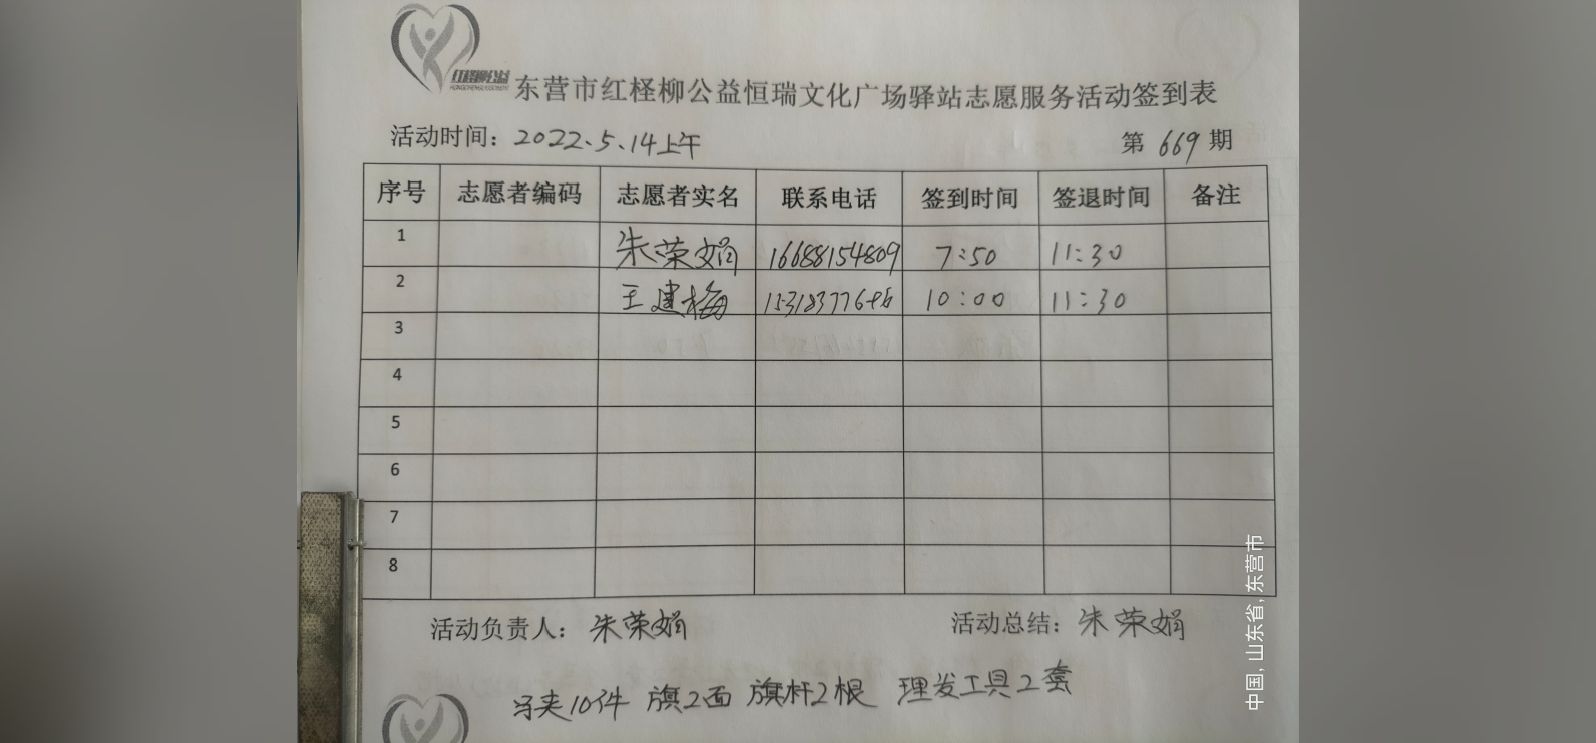 红柽柳公益
东营市红柽柳公益恒瑞文化广场驿站志愿服务活动签到表
活动时间：2022.5.14上午 第669期
序号 志愿者编码 志愿者实名 联系电话 签到时间 签退时间 备注
1 朱荣娟 16688154809 7:50 11:30
2 王建梅 10:00 11:30
3
4
5
6
7
8
活动负责人：朱荣娟 活动总结：朱荣娟
马夹10件 旗2面 旗杆2根 理发工具2套
中国, 山东省, 东营市